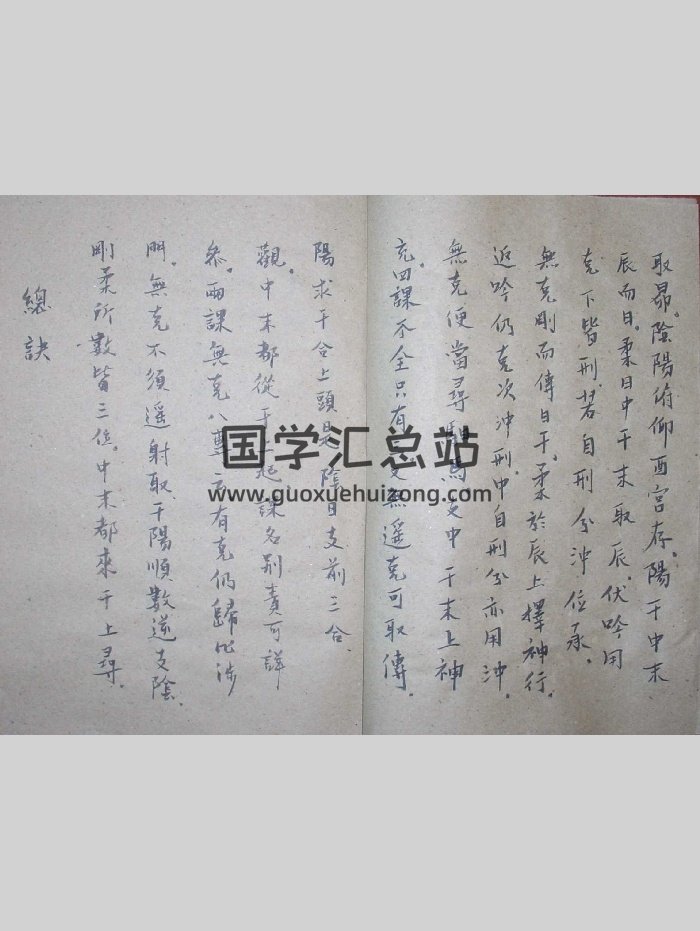 取昴。陰陽俯仰酉宮存。陽干中末
辰而日。柔日中干末取辰。伏吟用
克下皆刑。若自刑兮沖位承。
無克剛而傳日干。柔於辰上擇神行。
返吟仍克次沖刑。中自刑兮亦用沖。
無克便當尋驛馬支中干末上神
充。四課不全只有 無遥克可取傳。
陽求干合上頭是陰日支前三合。
觀。中末都從干 起課名別責可詳
參。兩課無克八專 有克仍歸比涉
門。無克不須遥射取干陽順數逆支陰。
剛柔所數皆三位。中末都來干上尋。
總訣
国学汇总站
www.guoxuehuizong.com